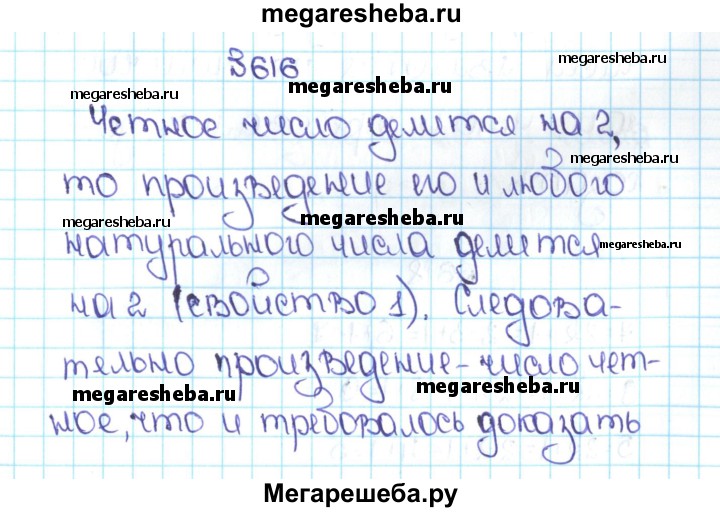 megaresheba.ru
3616
megaresheba.ru
megaresheba.ru
megaresheba.ru
Четное число делится на 2,
megaresheba.ru
то произведение его и любого
megaresheba.ru
megaresheba.ru
натурального числа делится
megaresheba.ru
на 2 (свойство 1). Следова-
тельно произведение - число чет-
megaresheba.ru
megaresheba.ru
ное, что и требовалось доказать
Мегарешеба.ру